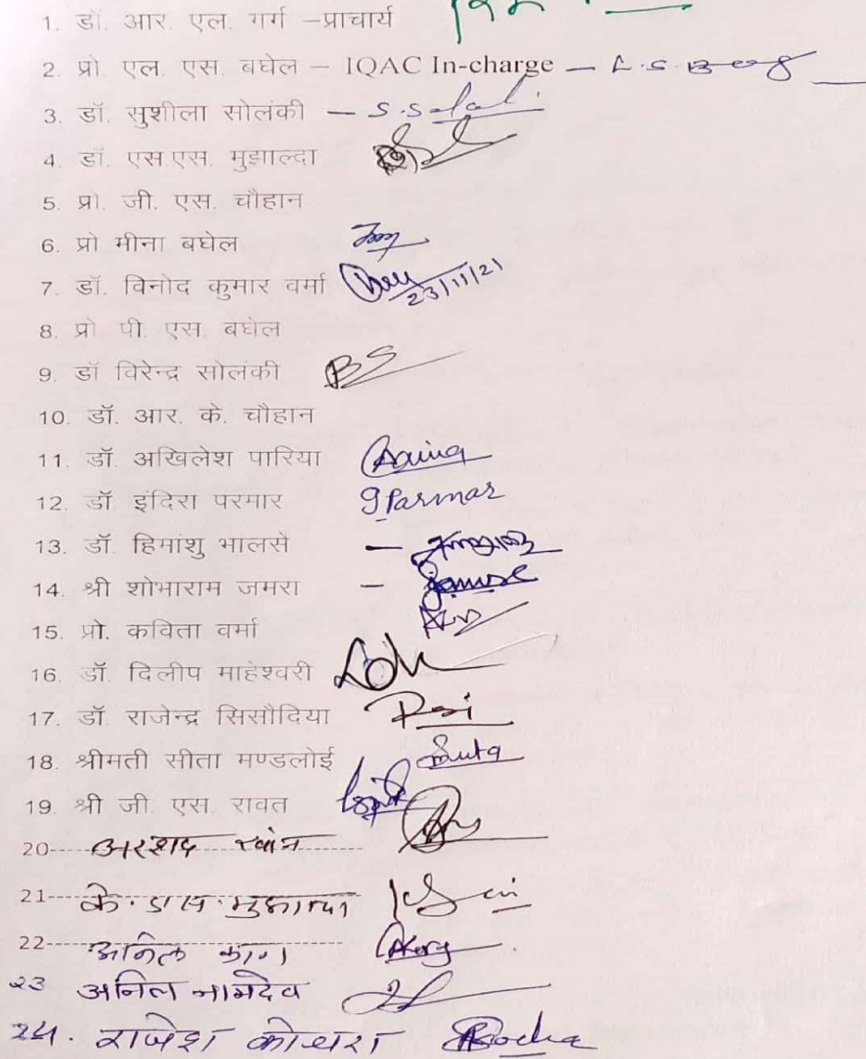 1. डॉ. आर. एल. गर्ग –प्राचार्य
2. प्रो. एल. एस. बघेल – IQAC In-charge –
3. डॉ. सुशीला सोलंकी –
4. डॉ. एस.एस. मुझाल्दा
5. प्रो. जी. एस. चौहान
6. प्रो मीना बघेल
7. डॉ. विनोद कुमार वर्मा 23/11/21
8. प्रो पी. एस. बघेल
9. डॉ विरेन्द्र सोलंकी BS
10. डॉ. आर. के. चौहान
11. डॉ. अखिलेश पारिया
12. डॉ इंदिरा परमार Parmar
13. डॉ. हिमांशु भालसे –
14. श्री शोभाराम जमरा –
15. प्रो. कविता वर्मा
16. डॉ. दिलीप माहेश्वरी
17. डॉ. राजेन्द्र सिसौदिया
18. श्रीमती सीता मण्डलोई
19. श्री जी. एस. रावत
20 अरशद खान
21 के. एस. मुझाल्दा
22 अनिल
23 अनिल नामदेव
24. राजेश कोचरा